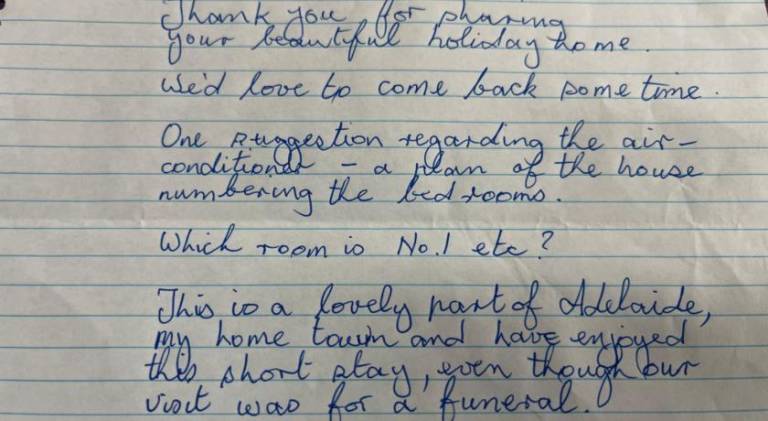 Thank you for sharing
your beautiful holiday home.
We'd love to come back some time.
One suggestion regarding the air-
conditioner - a plan of the house
numbering the bedrooms.
Which room is No.1 etc?
This is a lovely part of Adelaide,
my home town and have enjoyed
this short stay, even though our
visit was for a funeral.